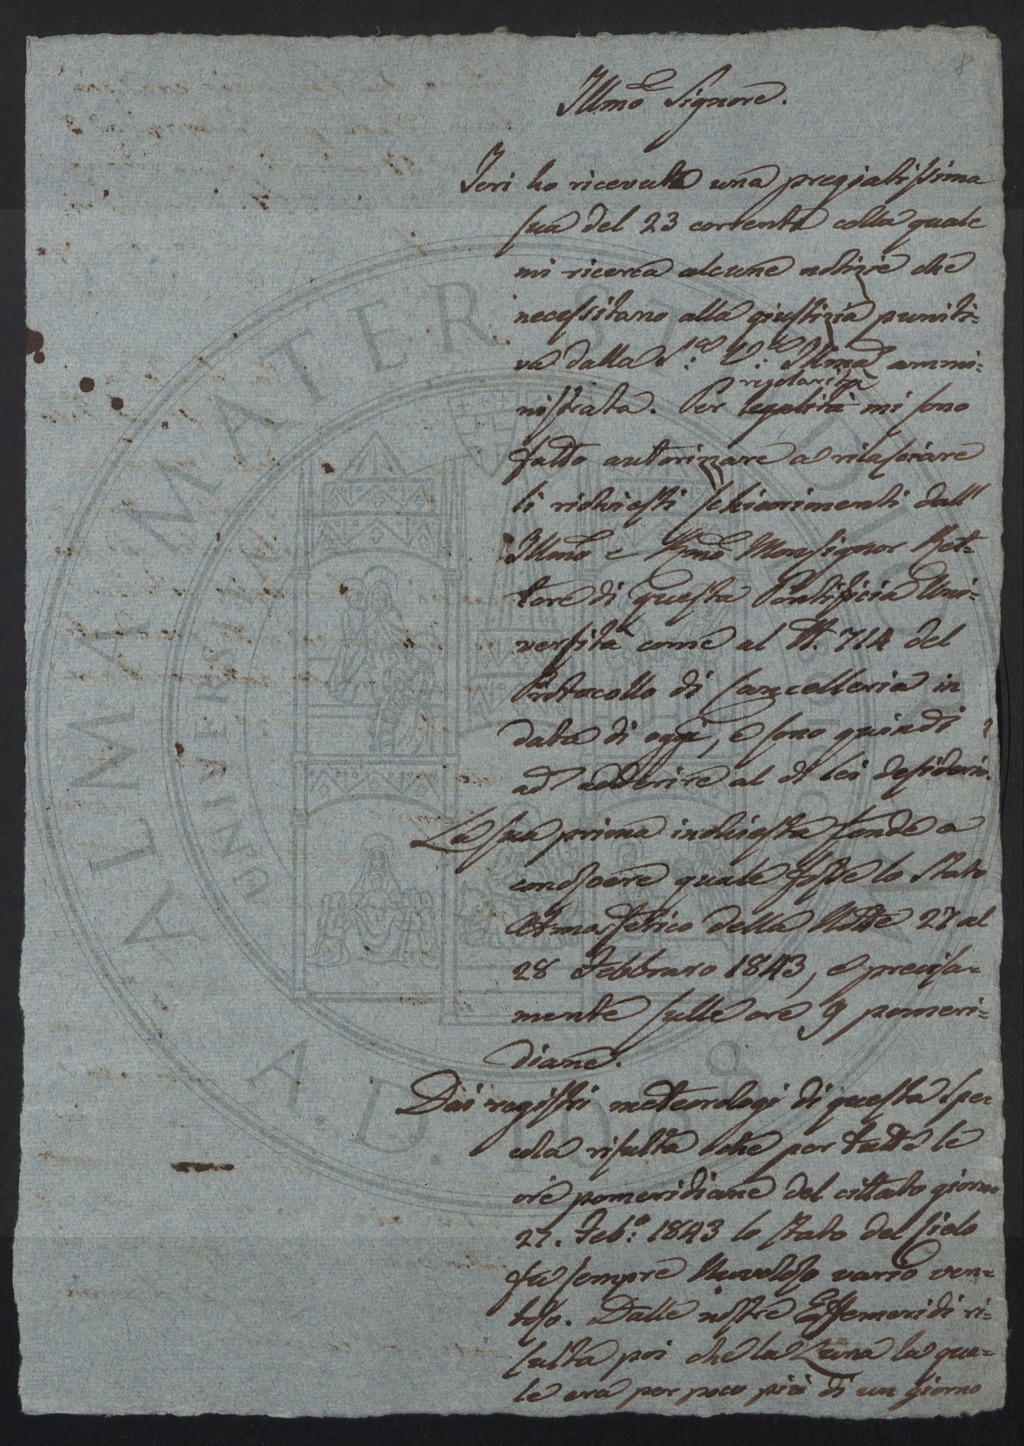 8
Illmo Signore.
Jeri ho ricevuta una pregiatissima
sua del 23 corrente colla quale
mi ricerca alcune notizie che
necessitano alla giustizia puniti=
va dalla S.ia V.a Illma ammi=
nistrata. Per legalità regolarità mi sono
fatto autorizzare a rilasciare
li richiesti schiarimenti dall'
Illmo e Rmo Monsignor Ret=
tore di questa Pontificia Uni=
versità come al N. 714 del
Protocollo di Cancelleria in
data di oggi, e sono quindi
ad adderire al di Lei desiderio.
La sua prima inchiesta tende a
conoscere quale fosse lo Stato
Atmosferico della Notte 27 al
28 Febbraro 1843, e precisa=
mente sulle ore 9 pomeri=
diane.
Dai registri meteorologi di questa Spe=
cola risulta che per tutte le
ore pomeridiane del cittato giorno
27. Feb.o 1843 lo stato del Cielo
fu sempre Nuvoloso vario ven=
toso. Dalle nostre Effemeridi ri=
sulta poi che la Luna la qua=
le era per poco più di un giorno
ALMA MATER STUDIORUM
UNIVERSITÀ DI BOLOGNA
A.D. 1088